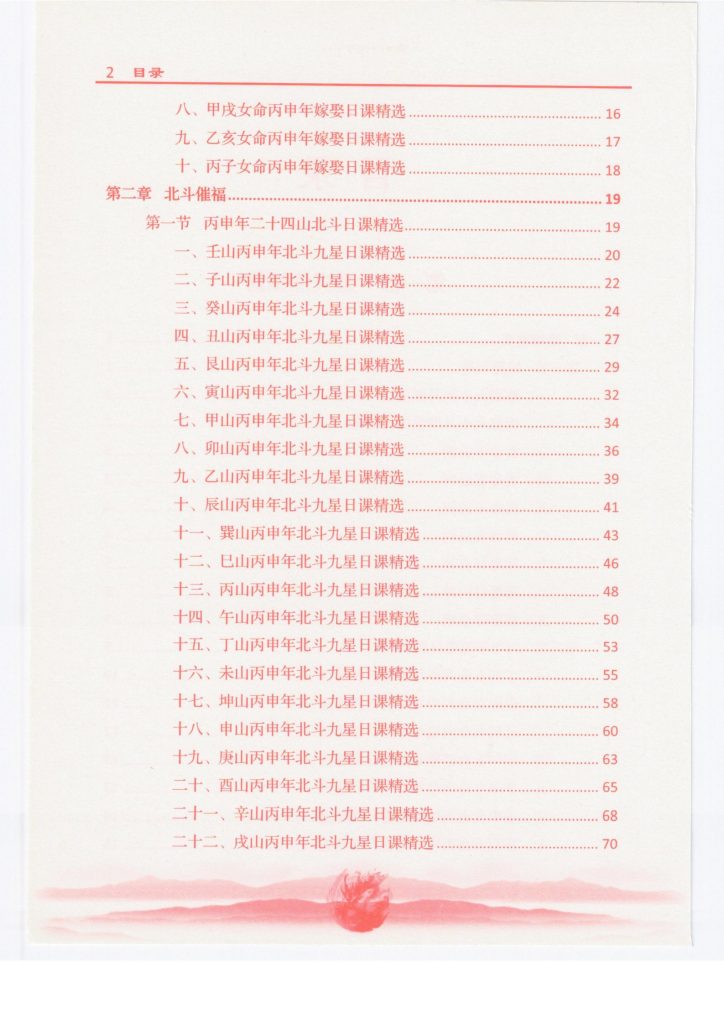 2 目录
八、甲戌女命丙申年嫁娶日课精选 16
九、乙亥女命丙申年嫁娶日课精选 17
十、丙子女命丙申年嫁娶日课精选 18
第二章 北斗催福 19
第一节 丙申年二十四山北斗日课精选 19
一、壬山丙申年北斗九星日课精选 20
二、子山丙申年北斗九星日课精选 22
三、癸山丙申年北斗九星日课精选 24
四、丑山丙申年北斗九星日课精选 27
五、艮山丙申年北斗九星日课精选 29
六、寅山丙申年北斗九星日课精选 32
七、甲山丙申年北斗九星日课精选 34
八、卯山丙申年北斗九星日课精选 36
九、乙山丙申年北斗九星日课精选 39
十、辰山丙申年北斗九星日课精选 41
十一、巽山丙申年北斗九星日课精选 43
十二、巳山丙申年北斗九星日课精选 46
十三、丙山丙申年北斗九星日课精选 48
十四、午山丙申年北斗九星日课精选 50
十五、丁山丙申年北斗九星日课精选 53
十六、未山丙申年北斗九星日课精选 55
十七、坤山丙申年北斗九星日课精选 58
十八、申山丙申年北斗九星日课精选 60
十九、庚山丙申年北斗九星日课精选 63
二十、酉山丙申年北斗九星日课精选 65
二十一、辛山丙申年北斗九星日课精选 68
二十二、戌山丙申年北斗九星日课精选 70